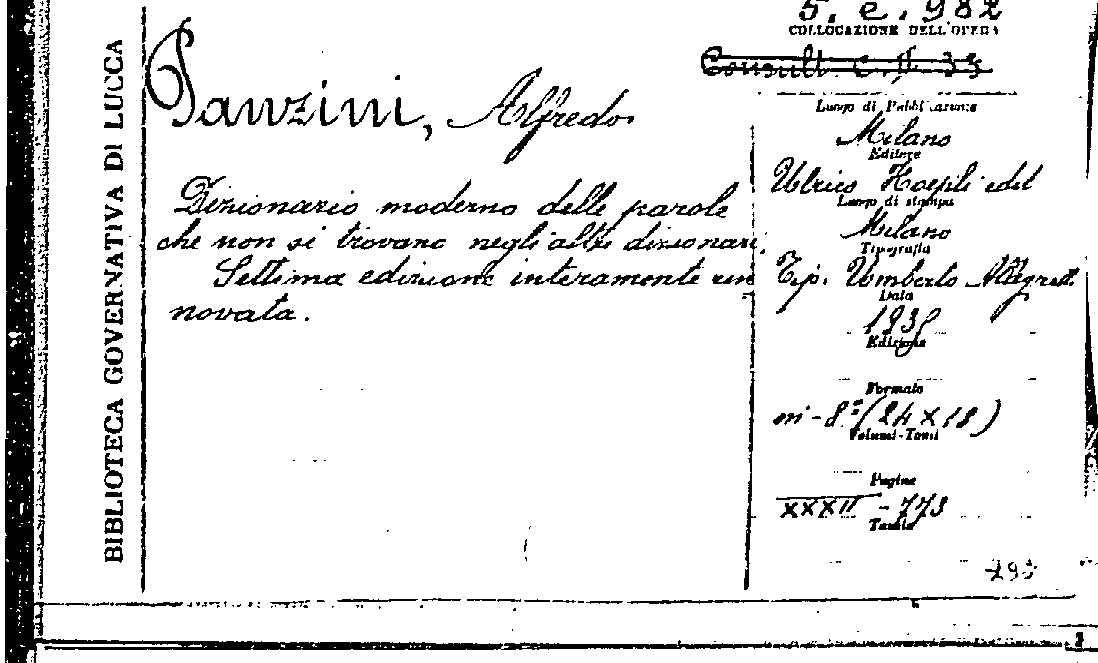 BIBLIOTECA GOVERNATIVA DI LUCCA
Panzini, Alfredo
Dizionario moderno delle parole
che non si trovano negli altri dizionari.
Settima edizione interamente rin
novata.
5. e. 982
COLLOCAZIONE DELL'OPERA
Consult. C. II. 33
Luogo di Pubblicazione
Milano
Editore
Ulrico Hoepli edit
Luogo di stampa
Milano
Tipografia
Tip. Umberto Allegretti
Data
1935
Edizione
Formato
in-8° (24 x 18)
Volumi-Tomi
Pagine
XXXII - 773
Tavole